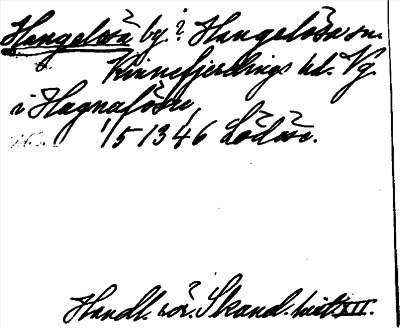 Hangelösa by i Hangelösa sn.
Kinnefjerdings hd. Vg.
i Hagnalösu,
1/5 1346 Lödöse.
Handl. rör. Skand. hist. XII.